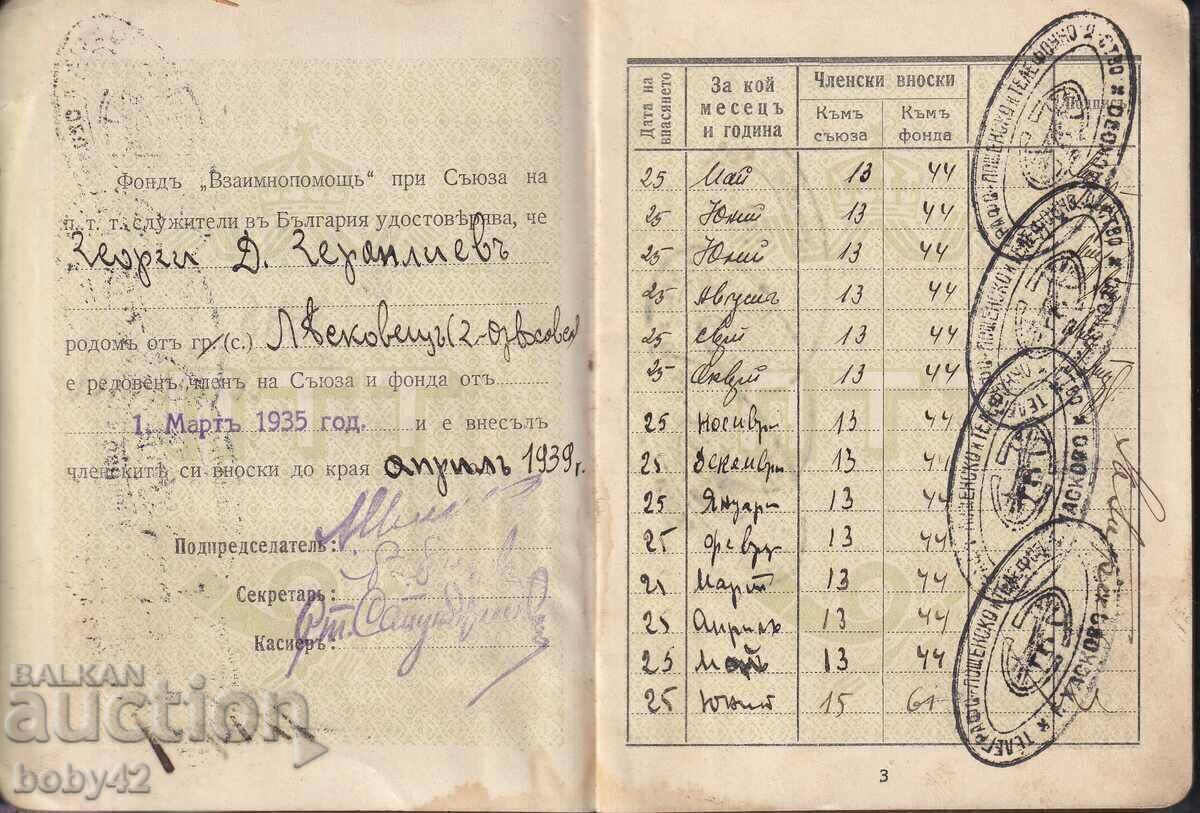 Фондъ „Взаимнопомощь“ при Съюза на
п. т. т. служители въ България удостовѣрява, че
Георги Д.
родомъ отъ гр. (с.) Лѣсковецъ
е редовенъ членъ на Съюза и фонда отъ
1. Мартъ 1935 год. и е внесълъ
членскитѣ си вноски до края априлъ 1939 г.
Подпредседатель:
Секретарь:
Касиеръ:
Дата на внасянето
За кой месецъ и година
Членски вноски
Къмъ съюза
Къмъ фонда
Подпись
25 Май 13 44
25 Юний 13 44
25 Юлий 13 44
25 Августъ 13 44
25 13 44
25 13 44
25 Ноемвр 13 44
25 Декемвр 13 44
25 Януар 13 44
25 Февру 13 44
25 Март 13 44
25 Априлъ 13 44
25 Май 13 44
25 Юний 15 61
ТЕЛЕГРАФО-ПОЩЕНСКО И ТЕЛЕФОННО
ХАСКОВО
3
BALKAN
auction
boby42